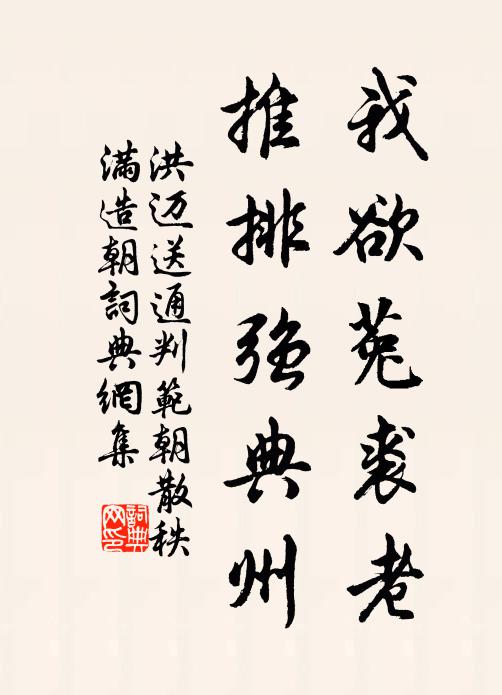 我欲菟裘老
推排强典州
洪迈送通判範朝散秩
滿造朝詞典網集
詞典
网印